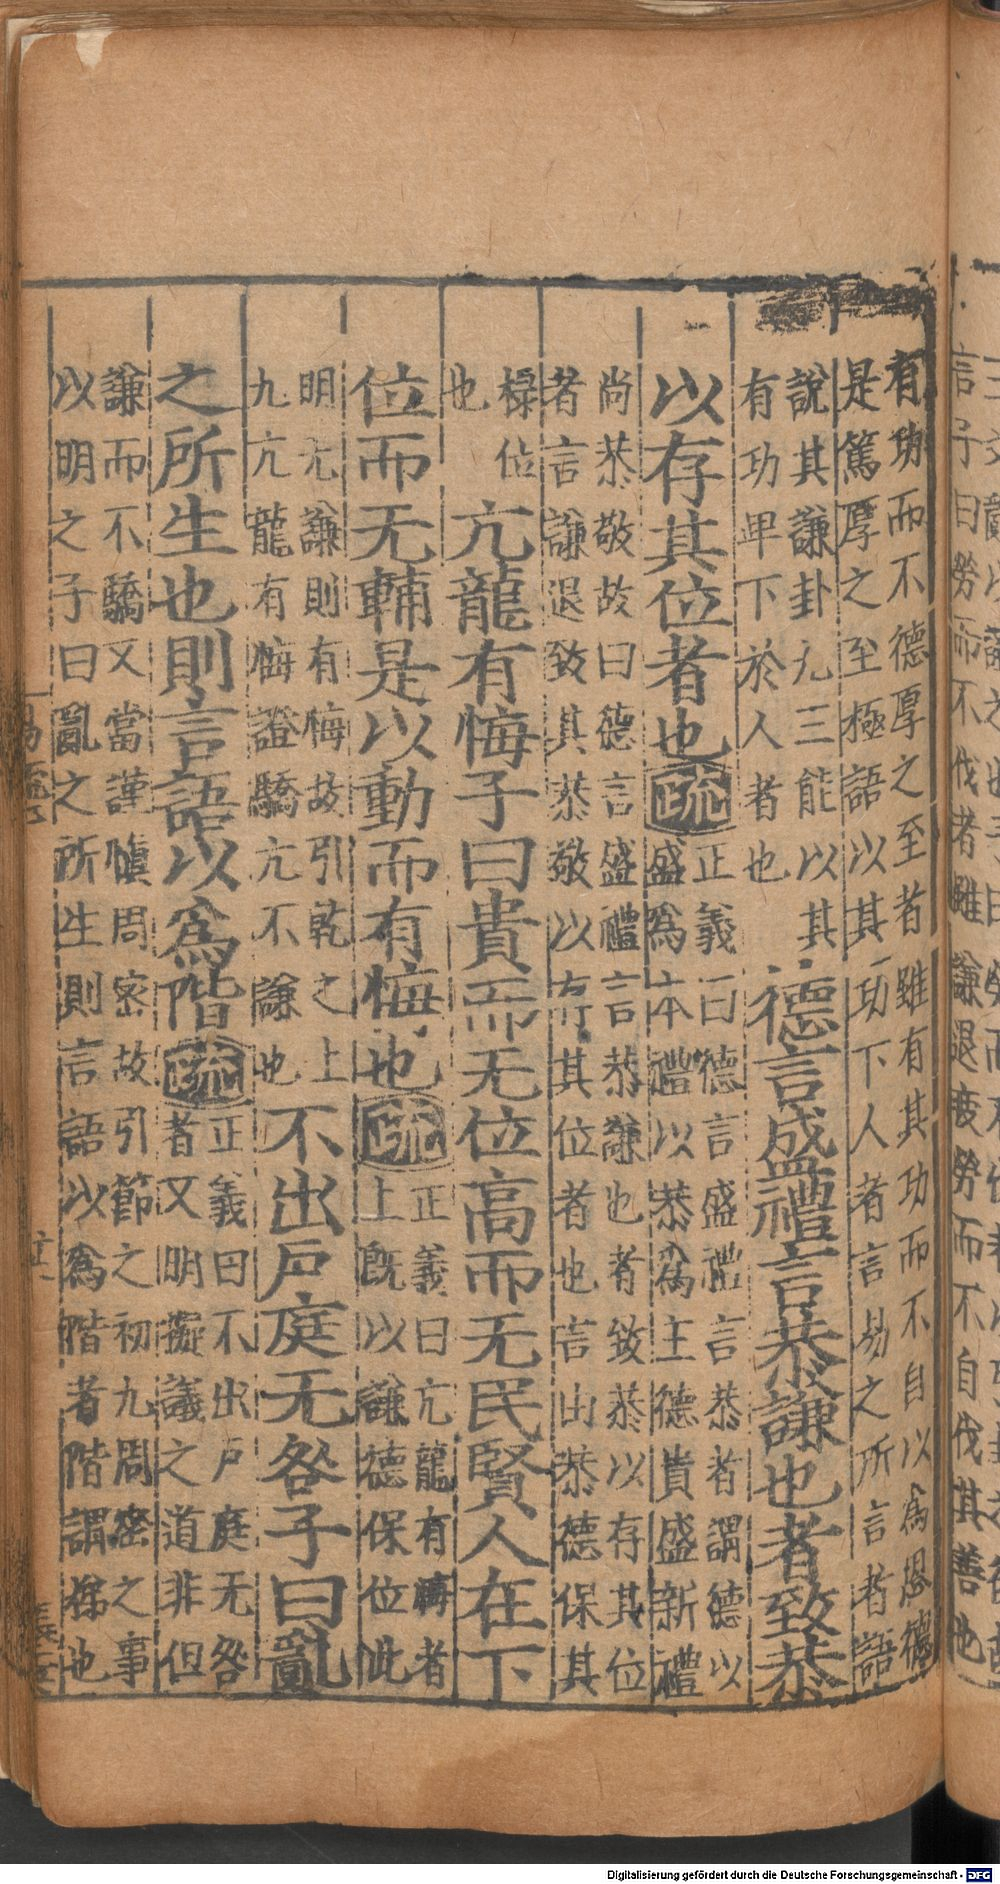 有功而不德厚之至者雖有其功而不自以爲恩德
是篤厚之至極語以其功下人者言易之所言者語
說其謙卦九三能以其
有功卑下於人者也
德言盛禮言恭謙也者致恭
以存其位者也疏
正義曰德言盛禮言恭者謂德以
盛爲本禮以恭爲主德貴盛新禮
尚恭敬故曰德言盛禮言恭謙也者致恭以存其位
者言謙退致其恭敬以存其位者也言由恭德保其
祿位
也
亢龍有悔子曰貴而无位高而无民賢人在下
位而无輔是以動而有悔也疏
正義曰亢龍有悔者
上既以謙德保位此
明无謙則有悔故引乾之上
九亢龍有悔證驕亢不謙也
不出戶庭无咎子曰亂
之所生也則言語以爲階疏
正義曰不出戶庭无咎
者又明擬議之道非但
謙而不驕又當謹愼周密故引節之初九周密之事
以明之子曰亂之所生則言語以爲階者階謂梯也
言子曰勞而不伐者雖謙退疲勞而不自伐其善也
Digitalisierung gefördert durch die Deutsche Forschungsgemeinschaft - DFG